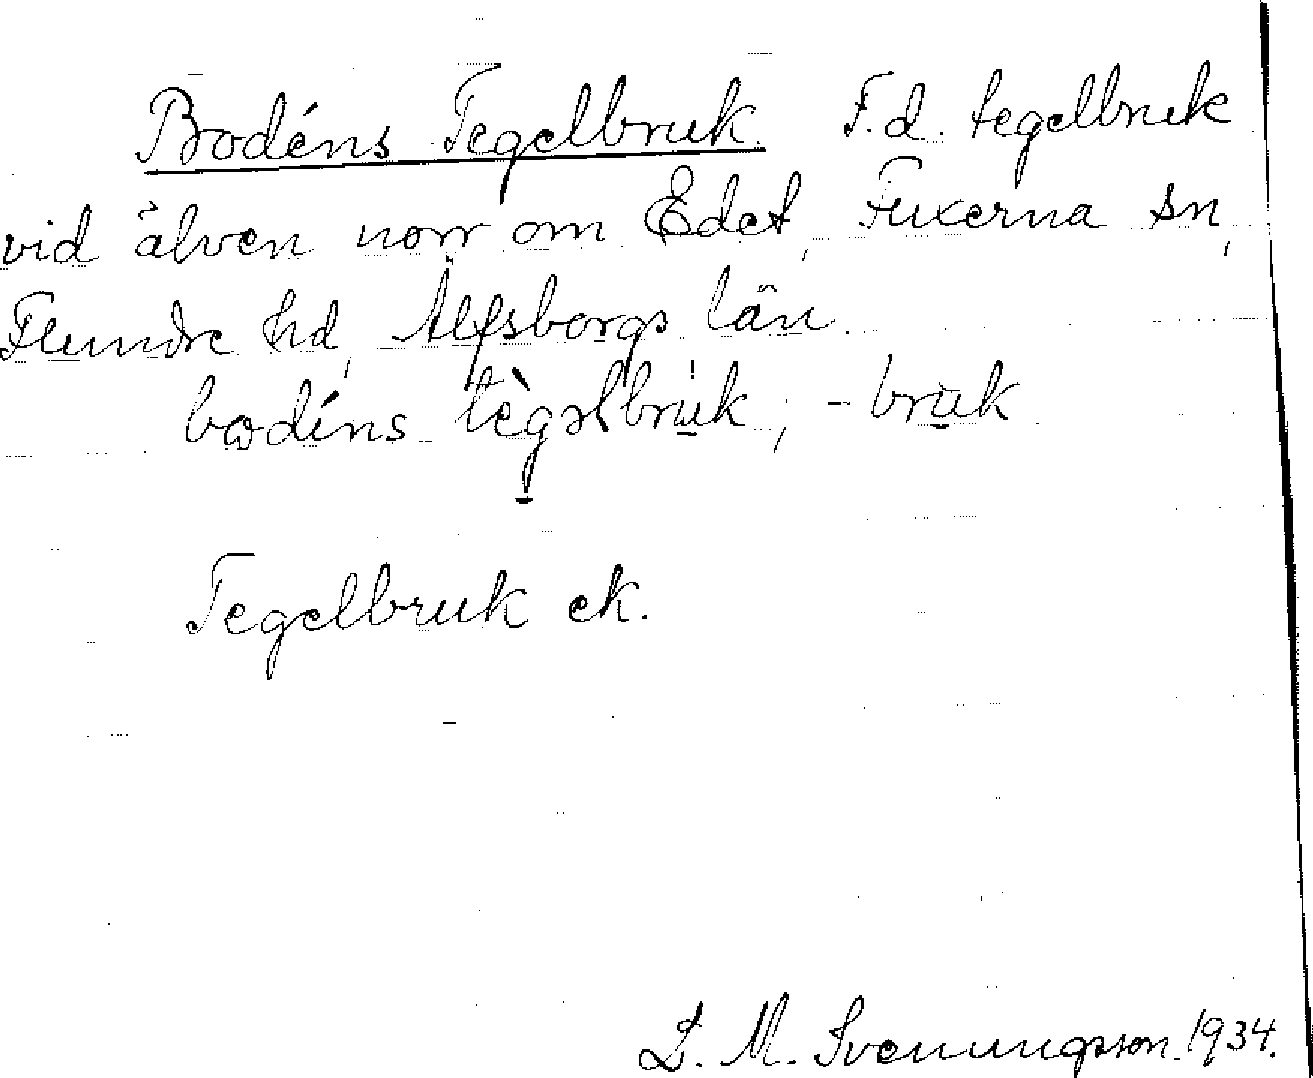 Bodéns Tegelbruk. F.d. tegelbruk
vid älven norr om Edet, Fuxerna sn,
Flundre hd, Älfsborgs län.
bodéns tègəlbru̇k, -bruk
Tegelbruk ek.
L. M. Svenungsson. 1934.